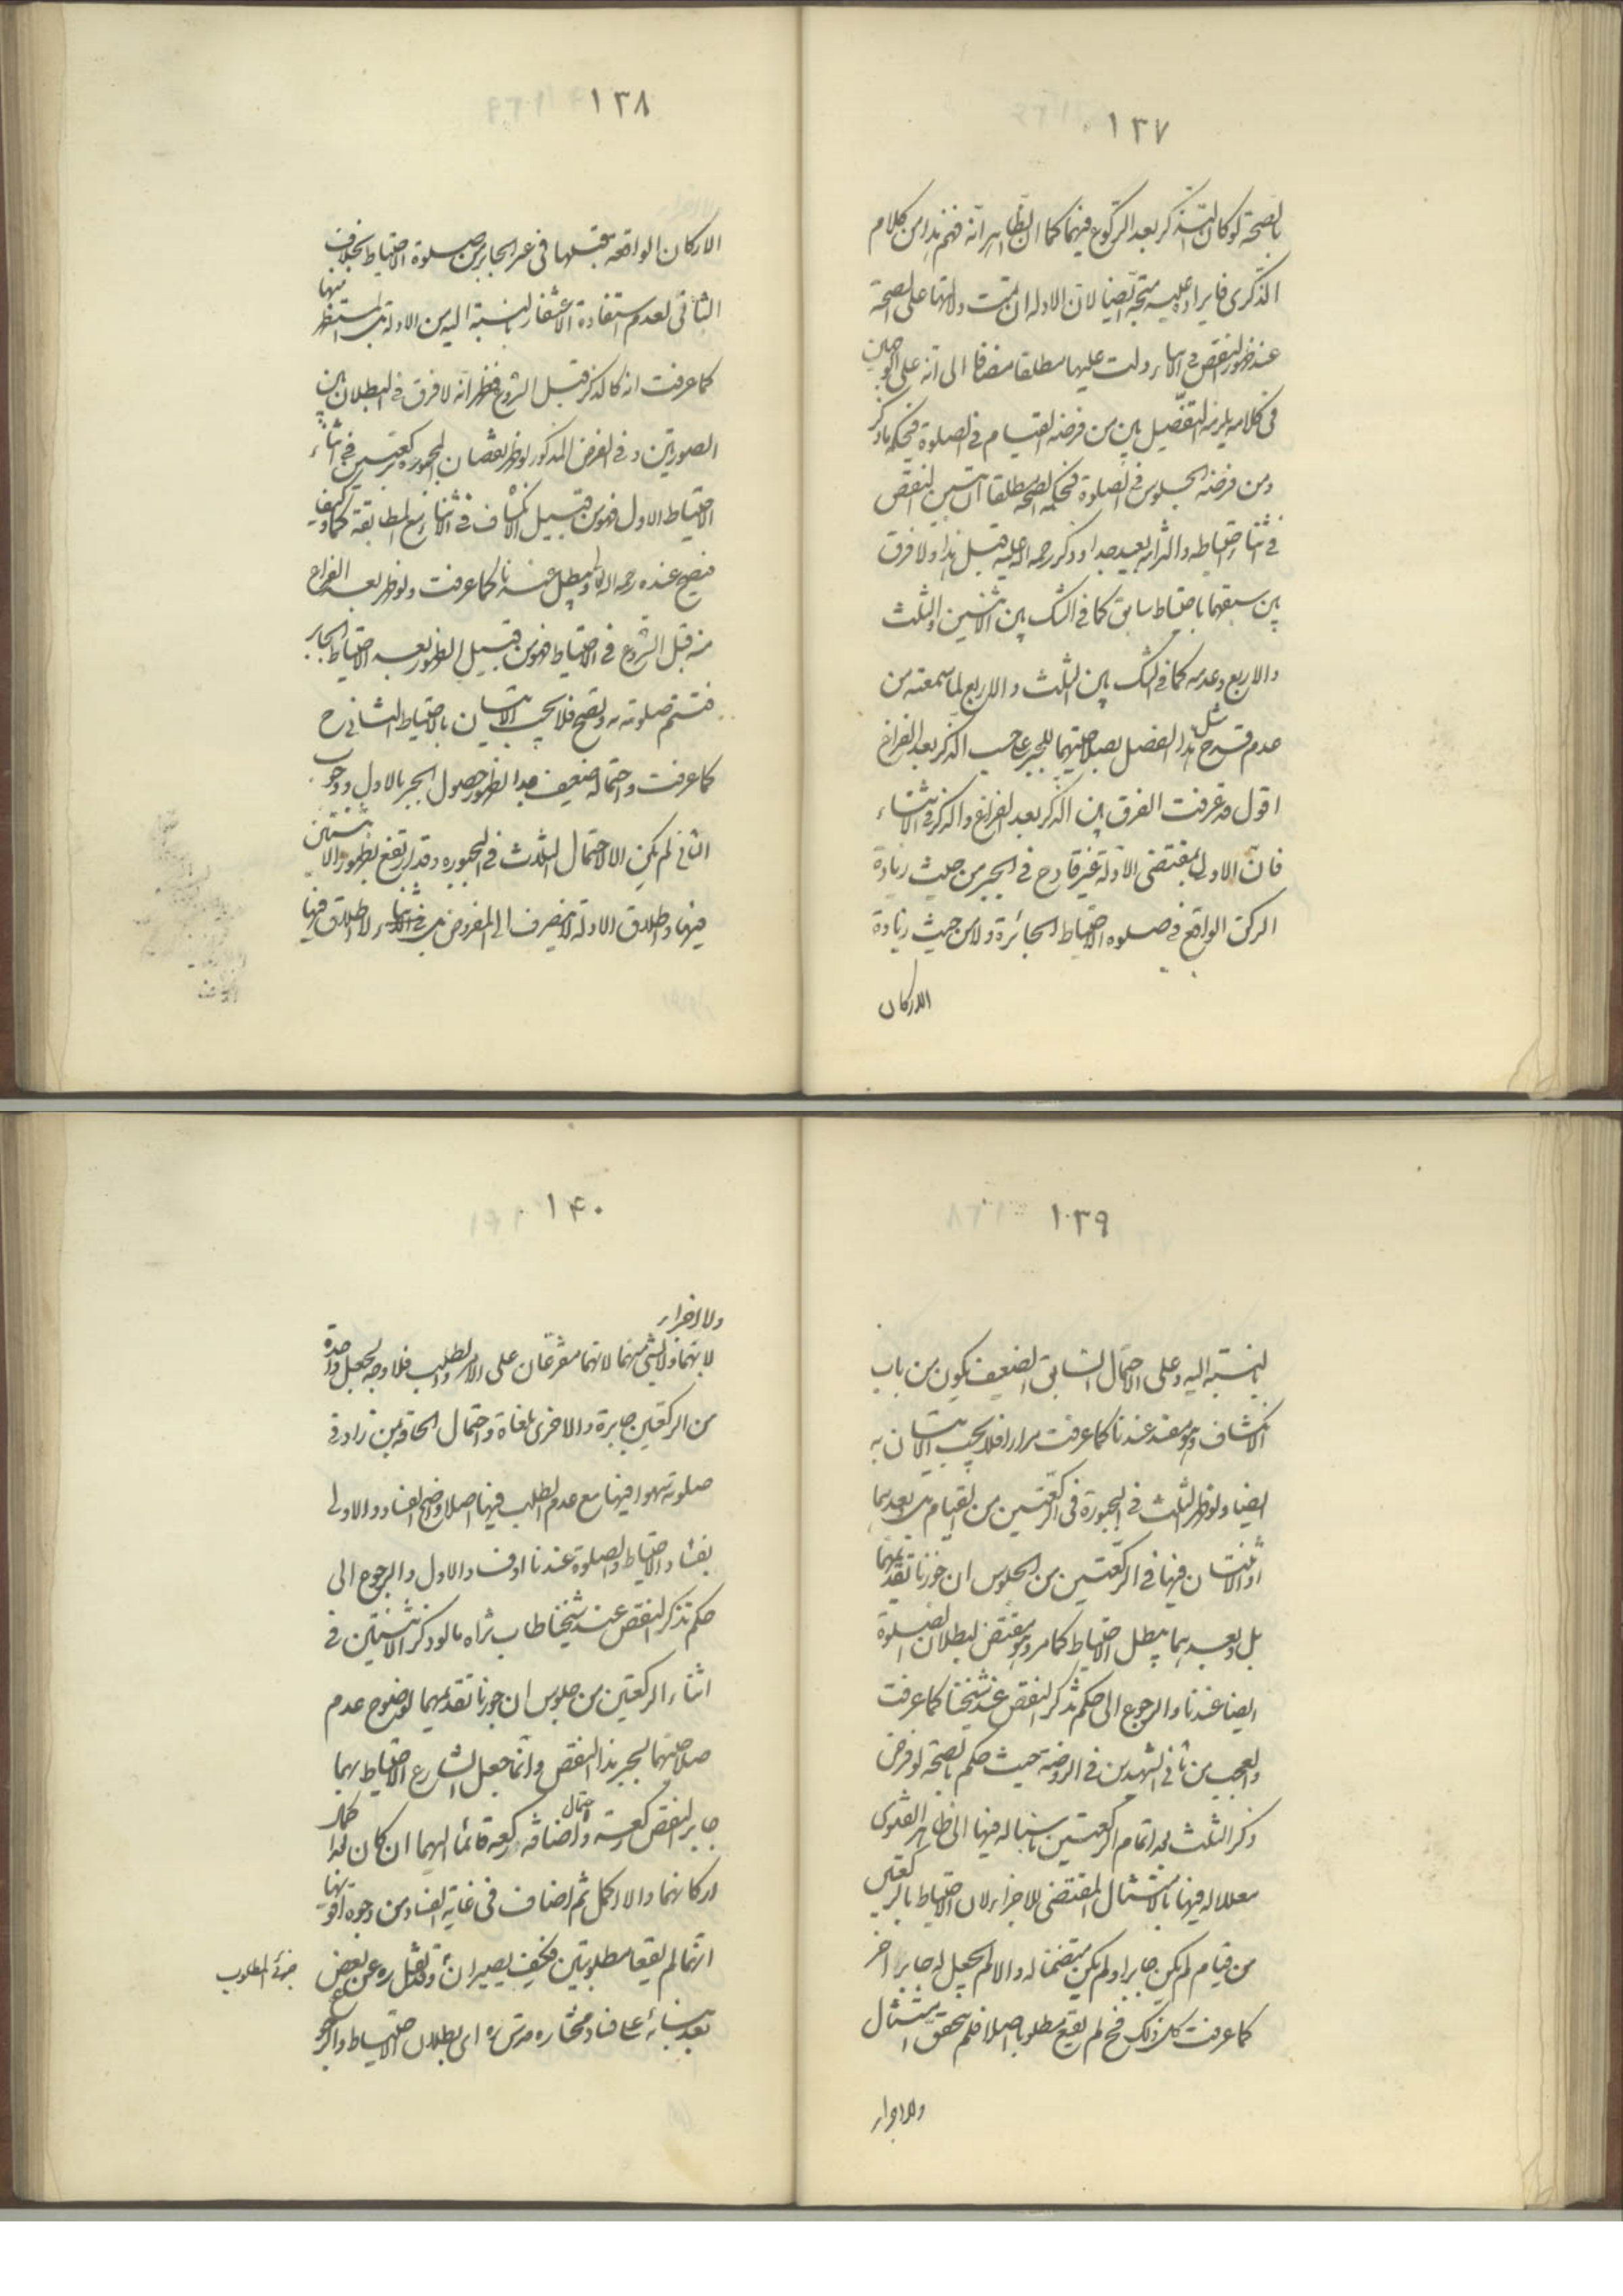 ١٣٧
بالصحة لو كان التذكر بعد الركوع فيهما كما ان الظاهر انه فهم هذا من كلام
الذكرى فايراده عليه متجه ايضا لان الادلة ان تمت دلالتها على الصحة
عند ظهور النقص في الاثناء دلت عليها مطلقا مضافا الى انه على الوجهين
في كلامه يلزمه التفصيل بين من فرضه القيام في الصلوة فيحكم بما ذكر
ومن فرضه الجلوس في الصلوة فيحكم بالصحة مطلقا ان تبين النقص
في اثناء احتياطه والتزامه بعيد جدا وذكر رحمه الله عليه قبل هذا ولا فرق
بين سبقهما باحتياط سابق كما في الشك بين الاثنين والثلث
والاربع وعدمه كما في الشك بين الثلث والاربع لما سمعته من
عدم قدح مثل هذا الفصل بصلاحيتهما للجبر على حسب الذكر بعد الفراغ
اقول قد عرفت الفرق بين الذكر بعد الفراغ والذكر في الاثناء
فان الاول بمقتضى الادلة غير قادح في الجبر من حيث زيادة
الركن الواقع في صلوة الاحتياط الجائزة ولا من حيث زيادة
الاركان
١٣٨
الاركان الواقعة قبلها في غير الجابر من صلوة الاحتياط بخلاف
الثاني لعدم استفادة الاغتفار بالنسبة اليه من الادلة بل المستظهر منها
كما عرفت انه كالذكر قبل الشروع فظهر انه لا فرق في البطلان بين
الصورتين وفي الفرض المذكور لو ظهر نقصان المجبورة ركعتين في اثناء
الاحتياط الاول فهو من قبيل الانكشاف في الاثناء مع المطابقة كما وكيفا
فتصح عنده رحمه الله ويبطل عندنا كما عرفت ولو ظهر بعد الفراغ
منه قبل الشروع في الاحتياط فهو من قبيل الظهور بعد الاحتياط الجابر
فتتم صلوته به وتصح فلا يجب الاتيان بالاحتياط الثاني ح
كما عرفت واحتماله ضعيف جدا لظهور حصول الجبر بالاول ووجوب
الثاني لم يكن الا لاحتمال الثلاث في المجبورة وقد ارتفع بظهور الاثنتين
فيها واطلاق الادلة لا ينصرف الى المفروض بل في الاثناء ولا اطلاق فيها
١٣٩
بالنسبة اليه وعلى الاحتمال السابق الضعيف يكون من باب
الانكشاف وهو مفسد عندنا كما عرفت مرارا فلا يجب الاتيان به
ايضا ولو ظهر الثلث في المجبورة في الركعتين من القيام بل بعدهما
او الاثنتان فيها في الركعتين من الجلوس ان جوزنا تقديمهما
بل وبعدهما يبطل الاحتياط كما مر وهو مقتض لبطلان الصلوة
ايضا عندنا والرجوع الى حكم تذكر النقص عند شيخنا كما عرفت
والعجب من ثاني الشهيدين في الروضة حيث حكم بالصحة لو فرض
ذكر الثلث بعد اتمام الركعتين ناسبا له فيها الى ظاهر الفتوى
معللا له فيها بالامتثال المقتضي للاجزاء لان الاحتياط بالركعتين
من قيام لم يكن جابرا ولم يكن متضمنا له والا لم يجعل له جابرا اخر
كما عرفت كل ذلك فح لم يقع مطلوبا اصلا فلم يتحقق امتثال
ولا اجزاء
١٤٠
ولا اجزاء
لانهما ولا لشئ منهما لانهما متفرعان على الامر والطلب فلا وجه لجعل واحدة
من الركعتين جابرة والاخرى ملغاة واحتمال الحاقه بمن زاد في
صلوته سهوا فيها مع عدم الطلب فيها اصلا واضح الفساد والاولى
بفساد الاحتياط والصلوة عندنا او فساد الاول والرجوع الى
حكم تذكر النقص عند شيخنا طاب ثراه ما لو ذكر الاثنتين في
اثناء الركعتين من جلوس ان جوزنا تقديمهما لوضوح عدم
صلاحيتهما لجبر هذا النقص وانما جعل الشارع الاحتياط بهما
جابر النقص ركعة واحتمال اضافة ركعة قائما اليهما ان كان كملا
اركانهما والا اكمل ثم اضاف في غاية الفساد من وجوه اقويها
انهما لم يقعا مطلوبتين فكيف يصيران وقد نقل ره عن بعض
جزء المطلوب
بعد بنائه على فساد مختاره قدس سره اى بطلان الاحتياط والرجوع